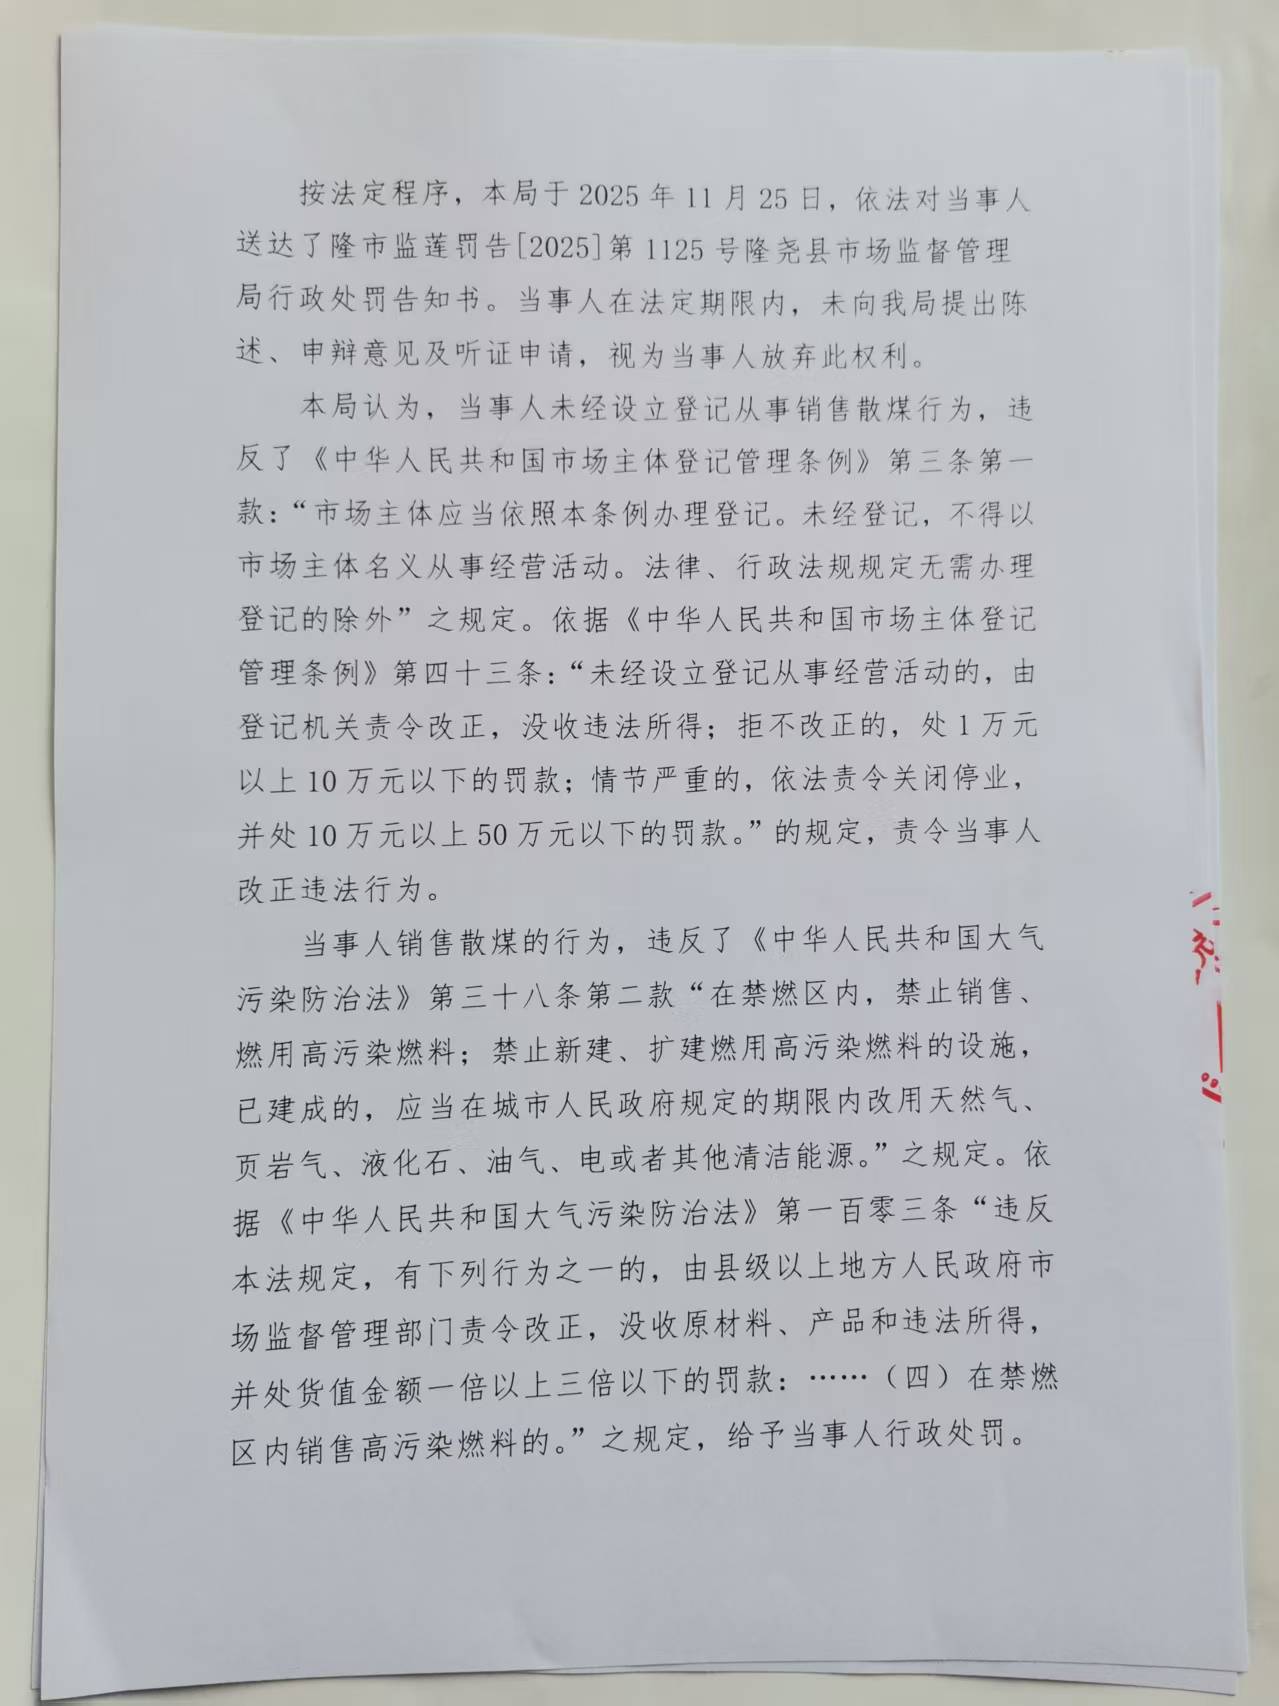 按法定程序，本局于 2025 年 11 月 25 日，依法对当事人
送达了隆市监莲罚告[2025]第 1125 号隆尧县市场监督管理
局行政处罚告知书。当事人在法定期限内，未向我局提出陈
述、申辩意见及听证申请，视为当事人放弃此权利。
本局认为，当事人未经设立登记从事销售散煤行为，违
反了《中华人民共和国市场主体登记管理条例》第三条第一
款：“市场主体应当依照本条例办理登记。未经登记，不得以
市场主体名义从事经营活动。法律、行政法规规定无需办理
登记的除外”之规定。依据《中华人民共和国市场主体登记
管理条例》第四十三条：“未经设立登记从事经营活动的，由
登记机关责令改正，没收违法所得；拒不改正的，处 1 万元
以上 10 万元以下的罚款；情节严重的，依法责令关闭停业，
并处 10 万元以上 50 万元以下的罚款。”的规定，责令当事人
改正违法行为。
当事人销售散煤的行为，违反了《中华人民共和国大气
污染防治法》第三十八条第二款“在禁燃区内，禁止销售、
燃用高污染燃料；禁止新建、扩建燃用高污染燃料的设施，
已建成的，应当在城市人民政府规定的期限内改用天然气、
页岩气、液化石、油气、电或者其他清洁能源。”之规定。依
据《中华人民共和国大气污染防治法》第一百零三条“违反
本法规定，有下列行为之一的，由县级以上地方人民政府市
场监督管理部门责令改正，没收原材料、产品和违法所得，
并处货值金额一倍以上三倍以下的罚款：……（四）在禁燃
区内销售高污染燃料的。”之规定，给予当事人行政处罚。